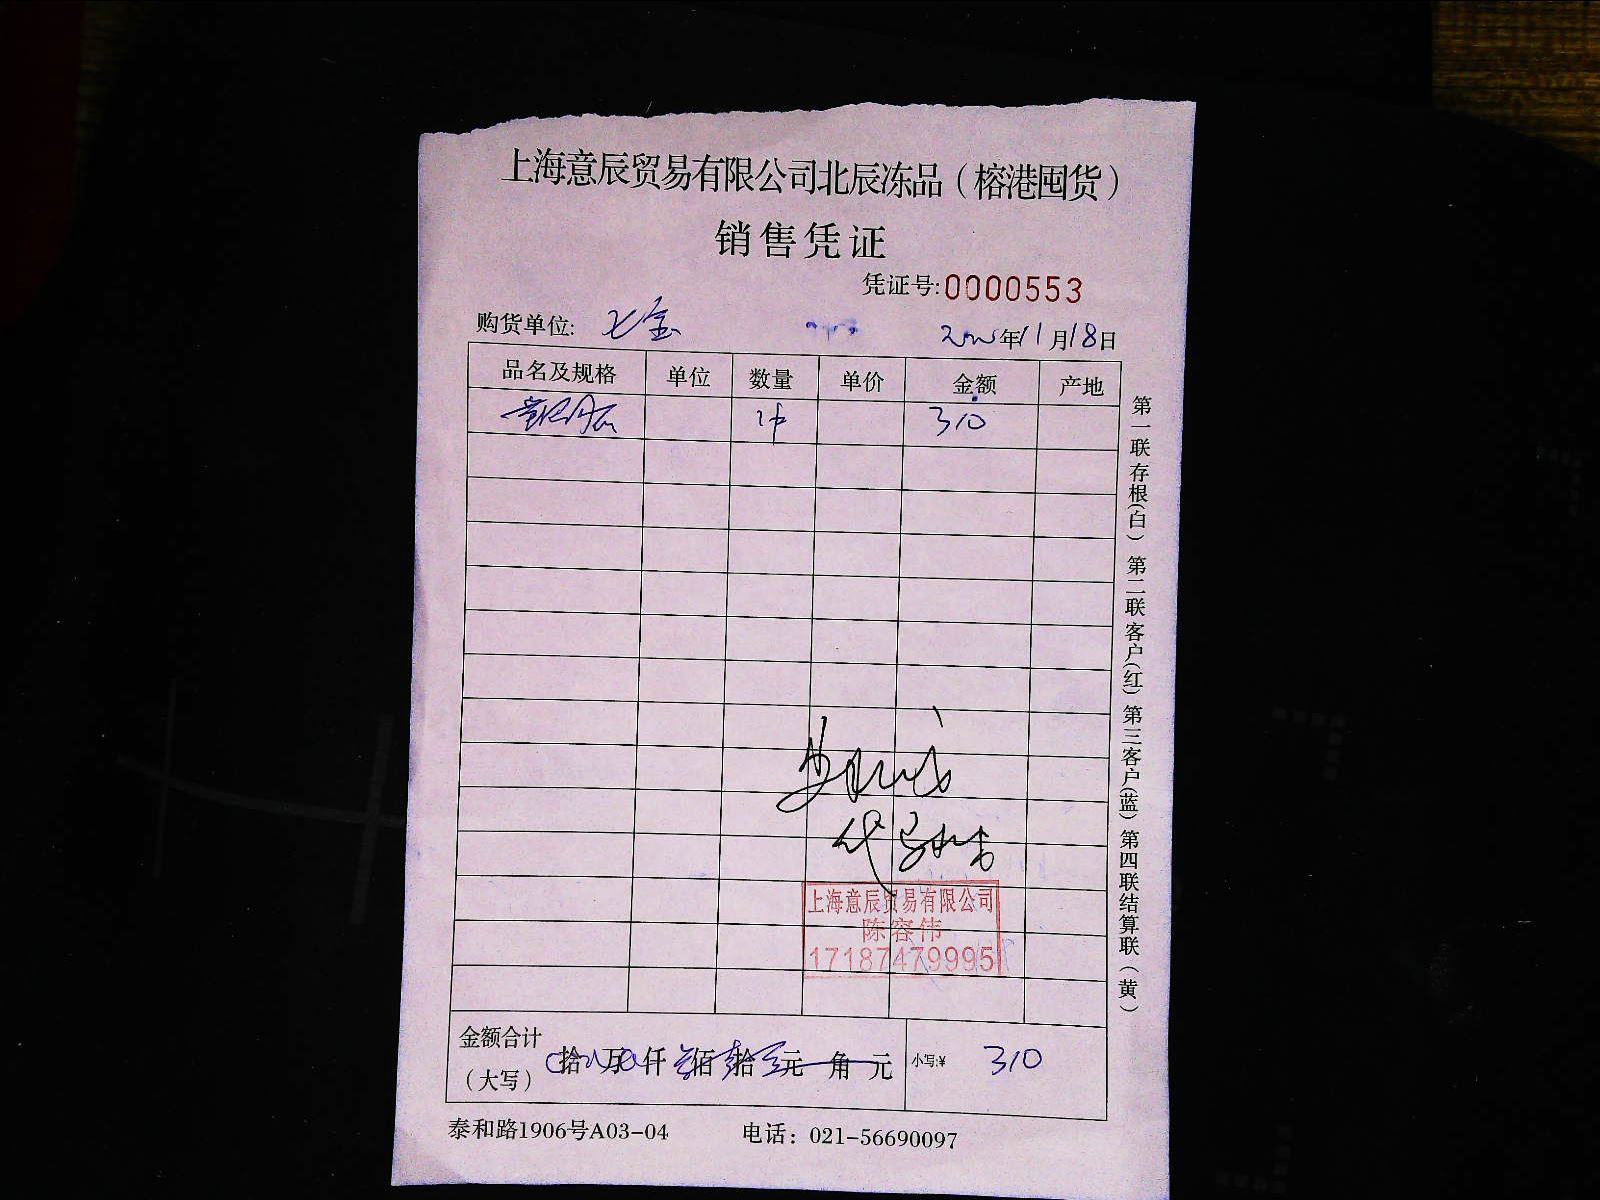 上海意辰贸易有限公司北辰冻品（榕港囤货）
销售凭证
凭证号:0000553
购货单位: 七宝
年11月18日
品名及规格 单位 数量 单价 金额 产地
1件 310
第一联存根(白) 第二联客户(红) 第三客户(蓝) 第四联结算联(黄)
代
上海意辰贸易有限公司
陈容伟
17187479995
金额合计
（大写） 拾 万 仟 叁佰 拾 元 角 元 小写:¥ 310
泰和路1906号A03-04 电话：021-56690097